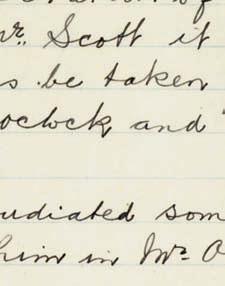 Mr. Scott it
be taken
oclock and
udiated som
him in Mr. O